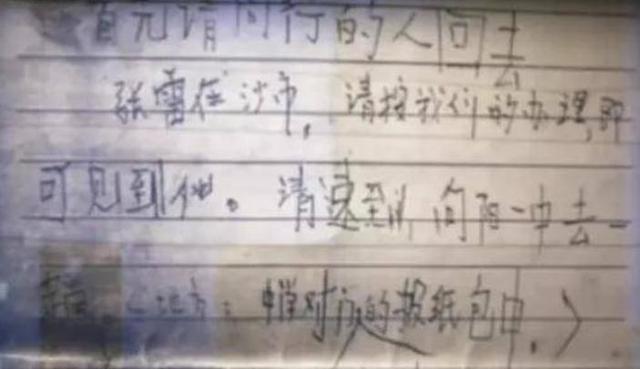 首先请同行的人回去
张雷在沙市,请按我们的办理,即
可见到他。请速到 向阳一中去一
〈地方: 对 的报纸包中.〉